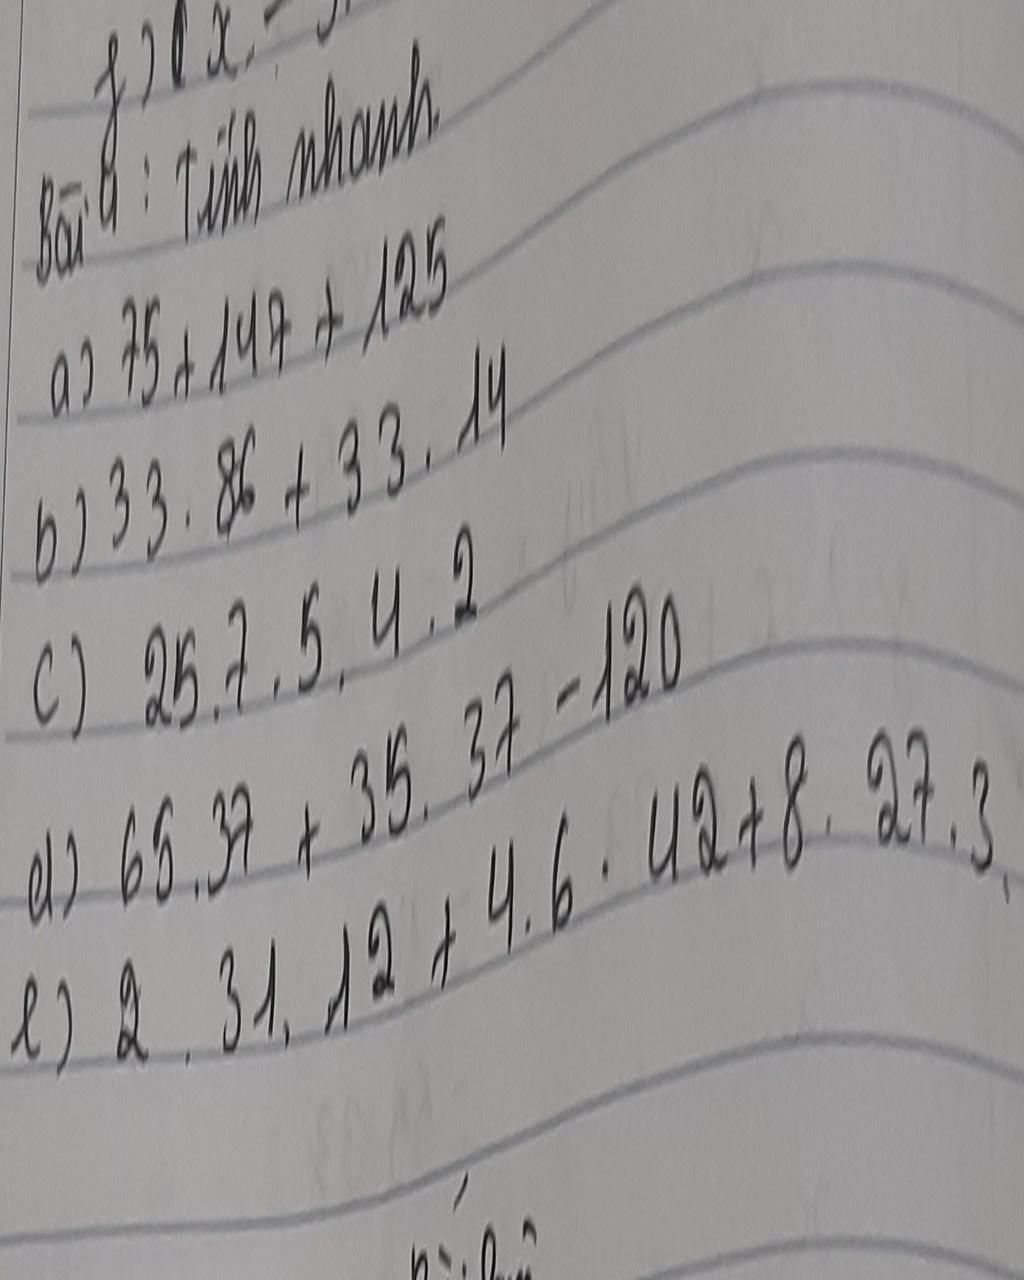 f) (x -
Bài 4: Tính nhanh.
a) 75 + 147 + 125
b) 33. 86 + 33. 14
c) 25.7.5.4.2
d) 65.37 + 35. 37 - 120
e) 2. 31. 12 + 4.6. 42 + 8. 27.3